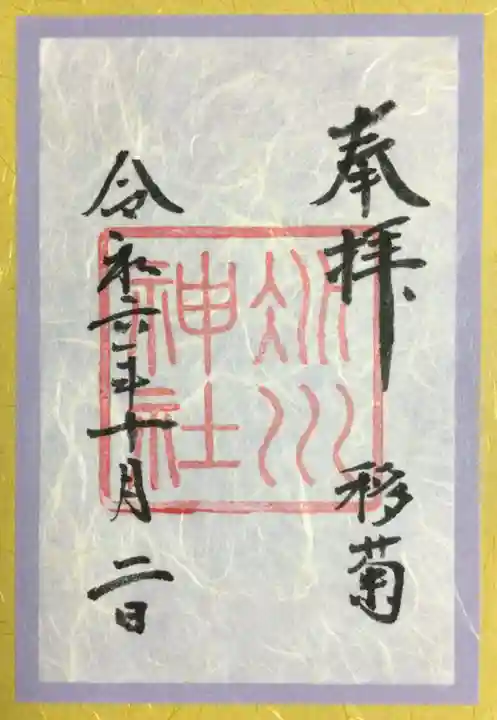 奉拝 移菊
氷川
神社
令和六年十月二日